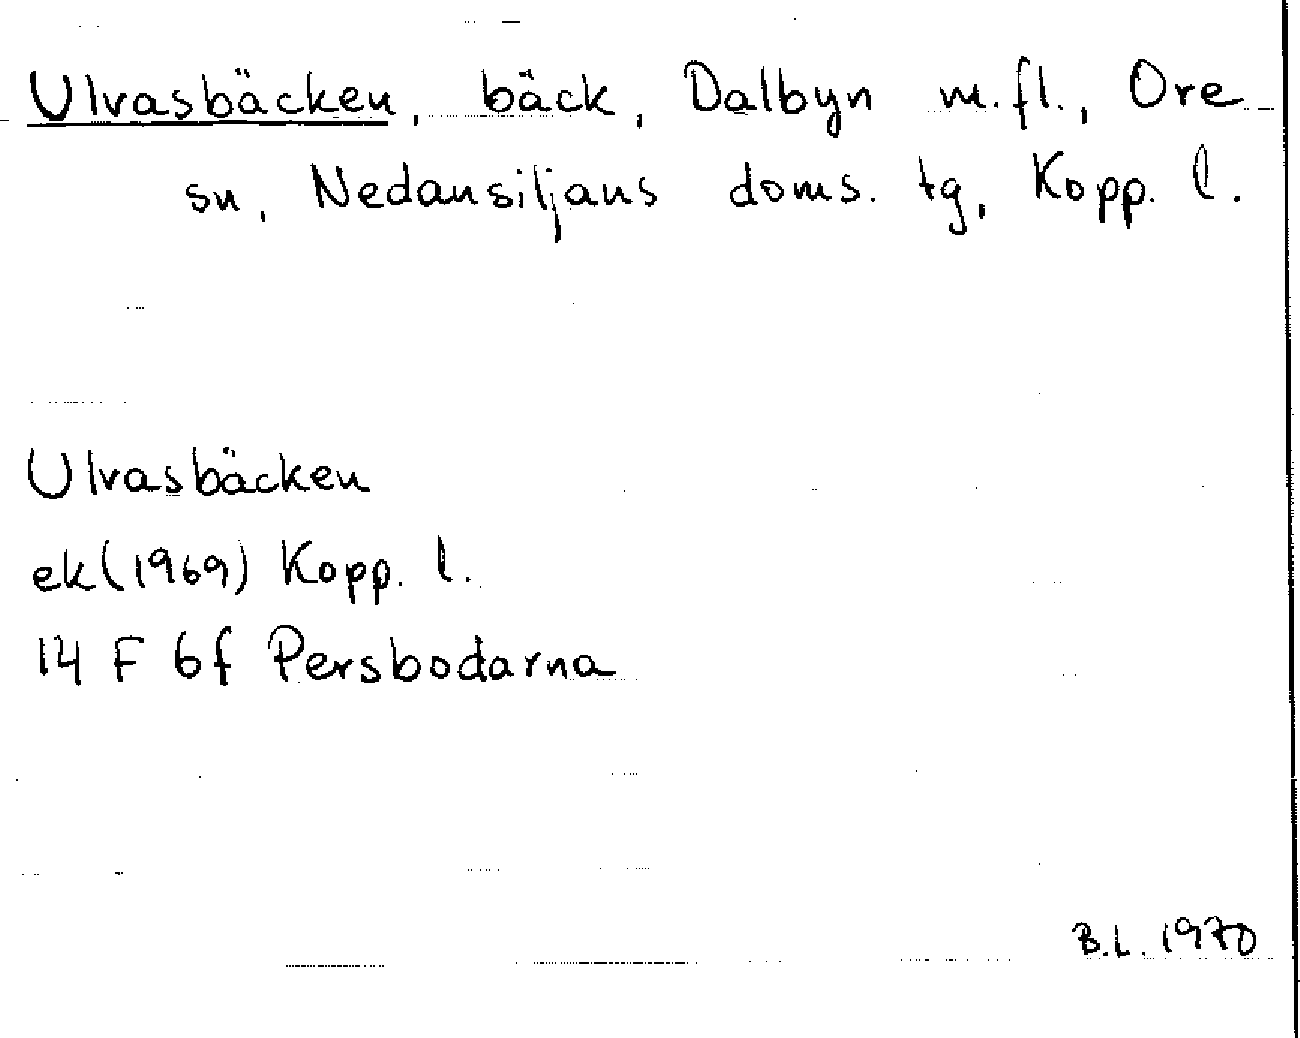 Ulvasbäcken, bäck, Dalbyn m.fl., Ore
sn, Nedansiljans doms. tg, Kopp. l.
Ulvasbäcken
ek(1969) Kopp. l.
14 F 6f Persbodarna
B.L. 1970